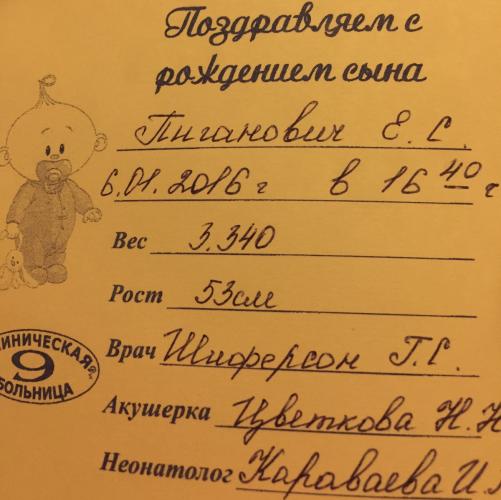 Поздравляем с
рождением сына
Пиганович Е. С.
6.01.2016 г в 16 40 ч
Вес 3.340
Рост 53см
Врач Шиферсон Г.С.
Акушерка Цветкова Н.Н
Неонатолог Караваева И.
ИНИЧЕСКАЯ
9
БОЛЬНИЦА